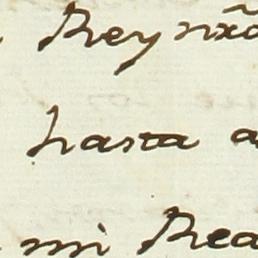 Rey nro
hasta a
mi Rea